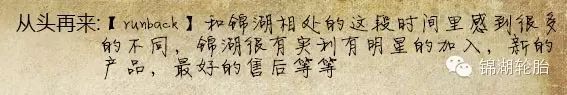 从头再来:【runback】和锦湖相处的这段时间里感到很多
的不同,锦湖很有实利有明星的加入,新的
产品,最好的售后等等
锦湖轮胎